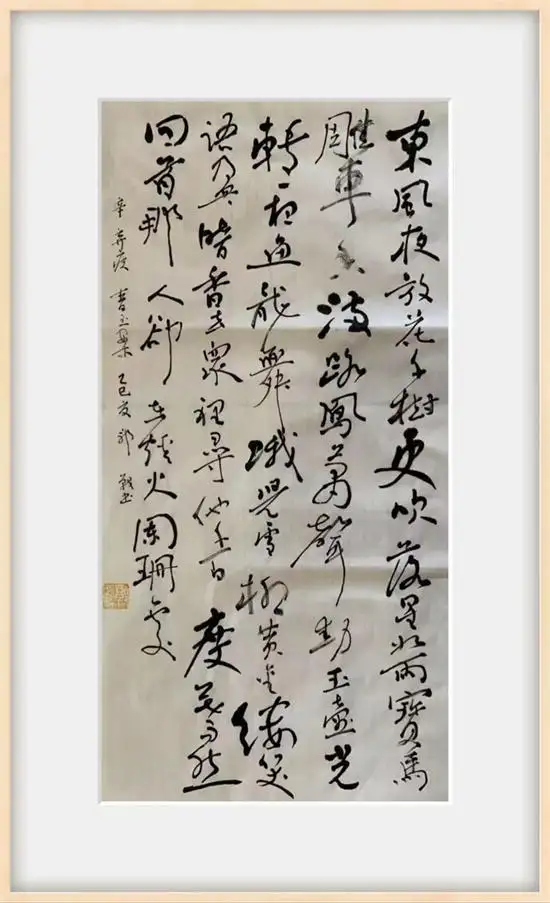 東風夜放花千樹更吹落星如雨寶馬
雕車香滿路鳳簫聲動玉壺光
轉一夜魚龍舞蛾兒雪柳黃金縷笑
語盈盈暗香去眾裡尋他千百度驀然
回首那人卻在燈火闌珊處
辛棄疾 青玉案 乙巳夏 書